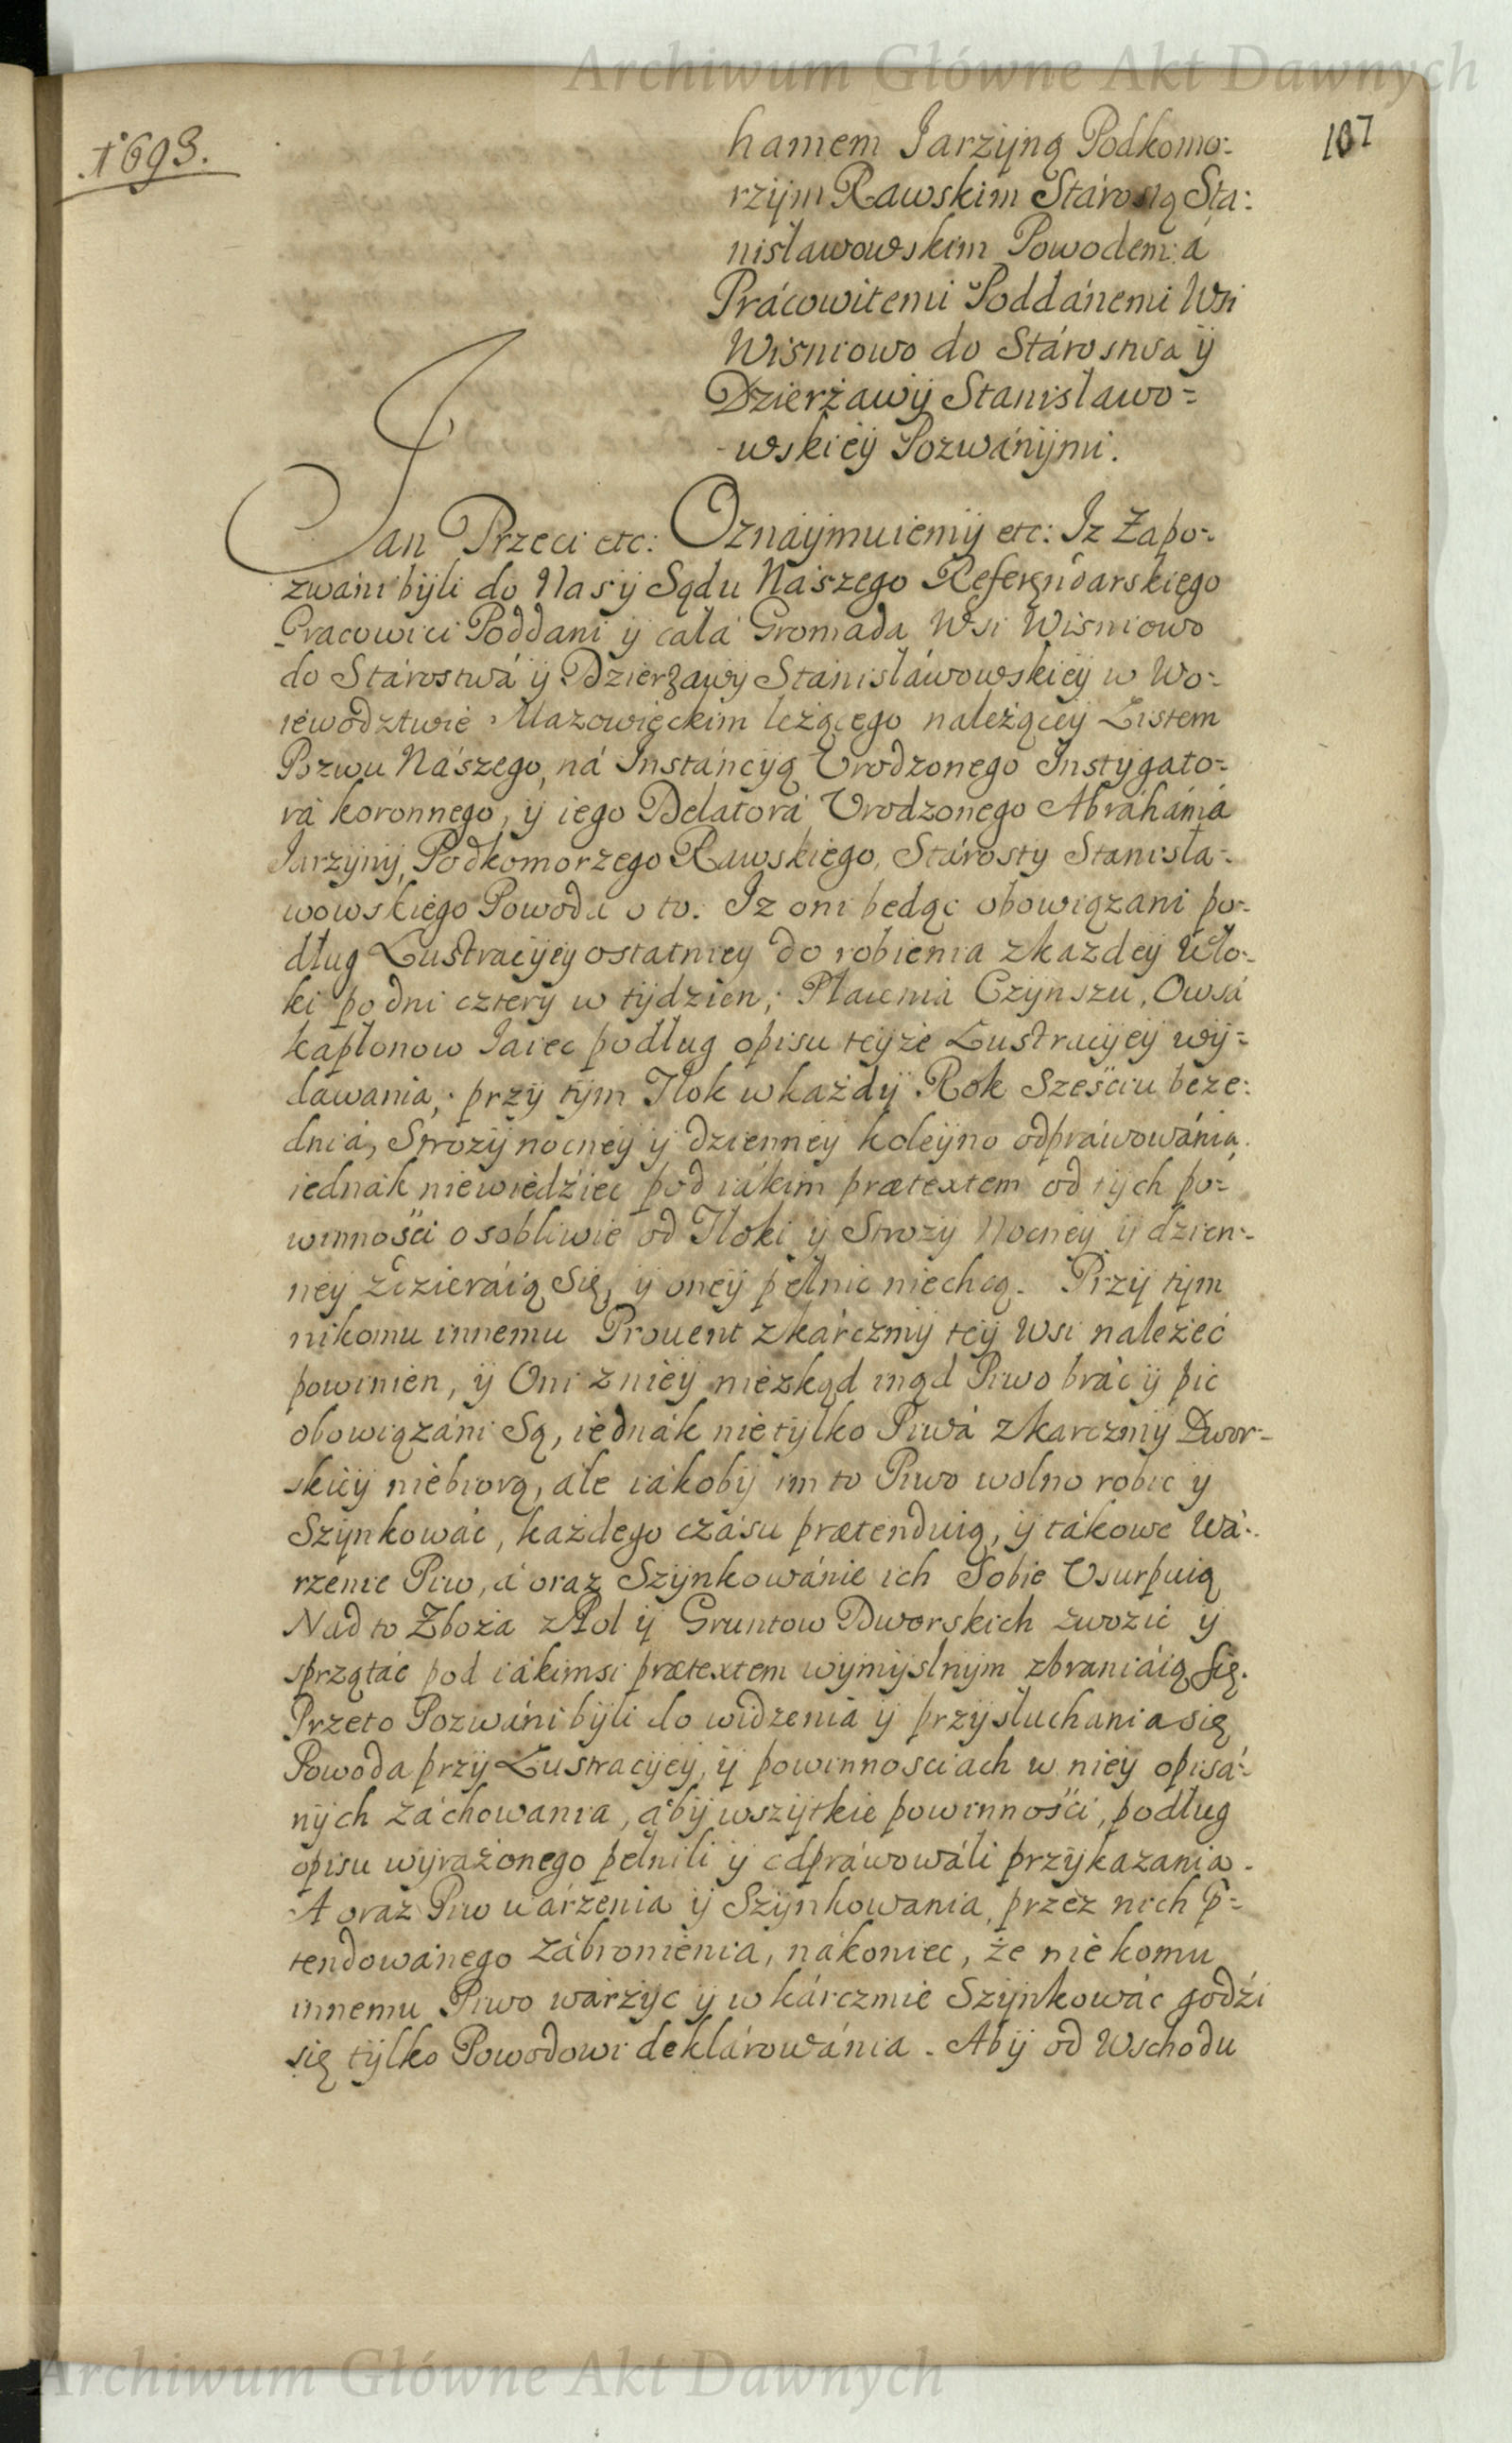 Archiwum Główne Akt Dawnych
1693.
107
hamem Jarzÿną Podkomo:
rzÿm Rawskim Stárostą Sta:
nisławowskim Powodem: á
Prácowitemi Poddánemi Wsi
Wisniowo do Stárostwa ÿ
Dzierżawÿ Stanisławo=
wskieÿ Pozwánÿmi.
Jan Trzeci etc: Oznaÿmuiemÿ etc: Iz Zapo-
zwani bÿli do Nas ÿ Sądu Nászego Referęndarskiego
Pracowici Poddani ÿ cała Gromada Wsi Wisniowo
do Stárostwá ÿ Dzierżawÿ Stanisláwowskieÿ w Wo-
iewodztwie Mazowięckim leżącego należąceÿ Listem
Pozwu Nászego, ná Instáncÿą Vrodzonego Instÿgato-
rá koronnego, ÿ iego Delatorá Vrodzonego Abráhámá
Jarzÿnÿ, Podkomorzego Rawskiego, Stárosty Stanisła-
wowskiego Powodu o to. Iz oni będąc obowiązani po-
dług Lustracÿeÿ ostatnieÿ do robienia z każdeÿ Wło-
ki po dni czterÿ w tÿdzien; Płacenia Czÿnszu, Owsá
kapłonow Jaiec podług opisu teÿże Lustracÿeÿ wÿ-
dawania, przÿ tÿm Tłok w każdÿ Rok Sześciu beze:
dnia, Stróżÿ nocneÿ ÿ dzienneÿ koleÿno odpráwowánia,
iednák niewiedźiec pod iákim prætextem od tÿch po-
winności osobliwie od Tłoki ÿ Strożÿ Nocneÿ ÿ dzien-
neÿ zdzieráią Się, ÿ oneÿ pełnic niechcą. Przÿ tÿm
nikomu innemu Prouent z kárczmÿ teÿ Wsi należeć
powinien, ÿ Oni z nieÿ niezkąd inąd Piwo brác ÿ pic
obowiązáni Są, iednák nie tÿlko Piwá z karczmÿ Dwor-
skieÿ niebiorą, ále iákobÿ im to Piwo wolno robic ÿ
Szÿnkowác, każdego czásu prætenduią, ÿ tákowe Wá-
rzenie Piw, á oraz Szÿnkowánie ich Sobie Vsurpuią
Nad to Zboża z Pol ÿ Gruntow Dworskich zwozic ÿ
sprzątác pod iákimsi prætextem wÿmÿslnÿm zbraniáią się.
Przeto Pozwáni bÿli do widzenia ÿ przÿsłuchania się
Powoda przÿ Lustracÿeÿ, ÿ powinnosciach w nieÿ opisá-
nÿch záchowania, ábÿ wszÿtkie powinności, podług
opisu wÿrażonego pełnili ÿ odpráwowáli przÿkazania.
A oraz Piw wárzenia ÿ Szÿnkowania, przez nich p-
tendowánego zábronienia, nákoniec, że nie komu
innemu Piwo warzÿc ÿ w kárczmie Szÿnkowác godźi
się tÿlko Powodowi deklárowánia. Abÿ od Wschodu
Archiwum Główne Akt Dawnych